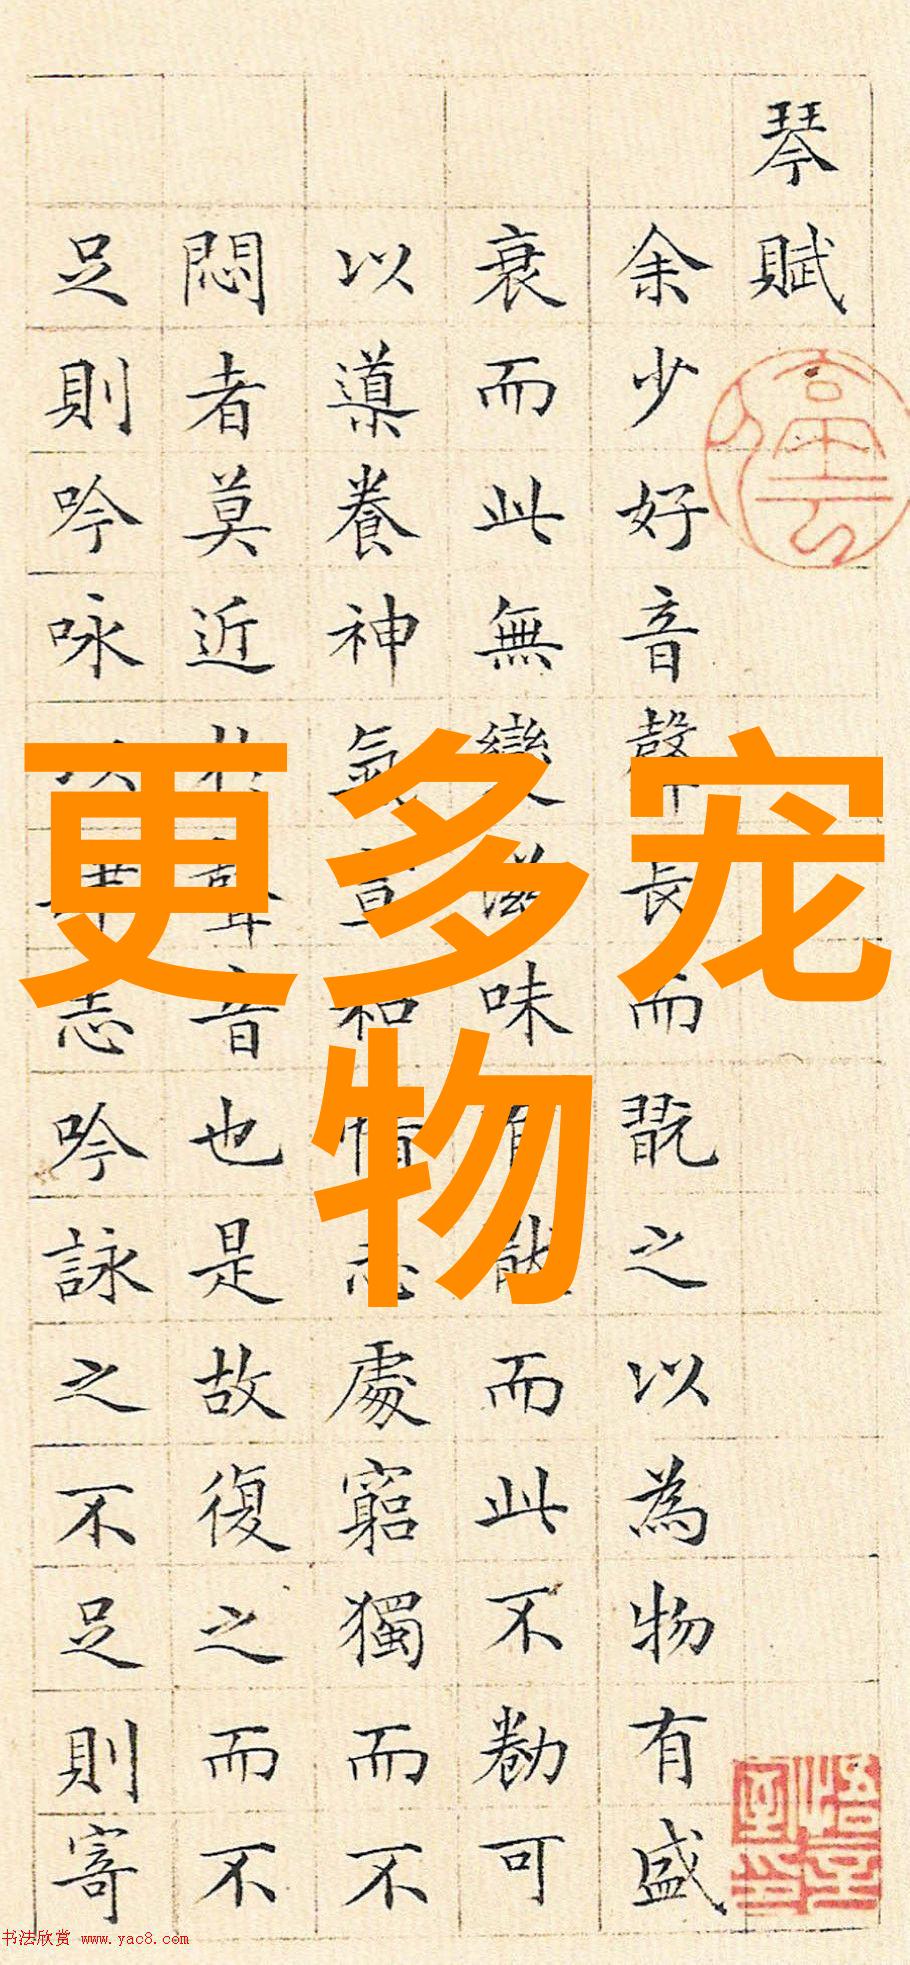 琴賦
余少好音聲長而翫之以為物有盛
衰而此無變滋味有猒而此不勌可
以導養神氣宣和情志處窮獨而不
悶者莫近於聲音也是故復之而不
足則吟咏以肆志吟詠之不足則寄
更多宠
物
书法欣赏 www.yac8.com